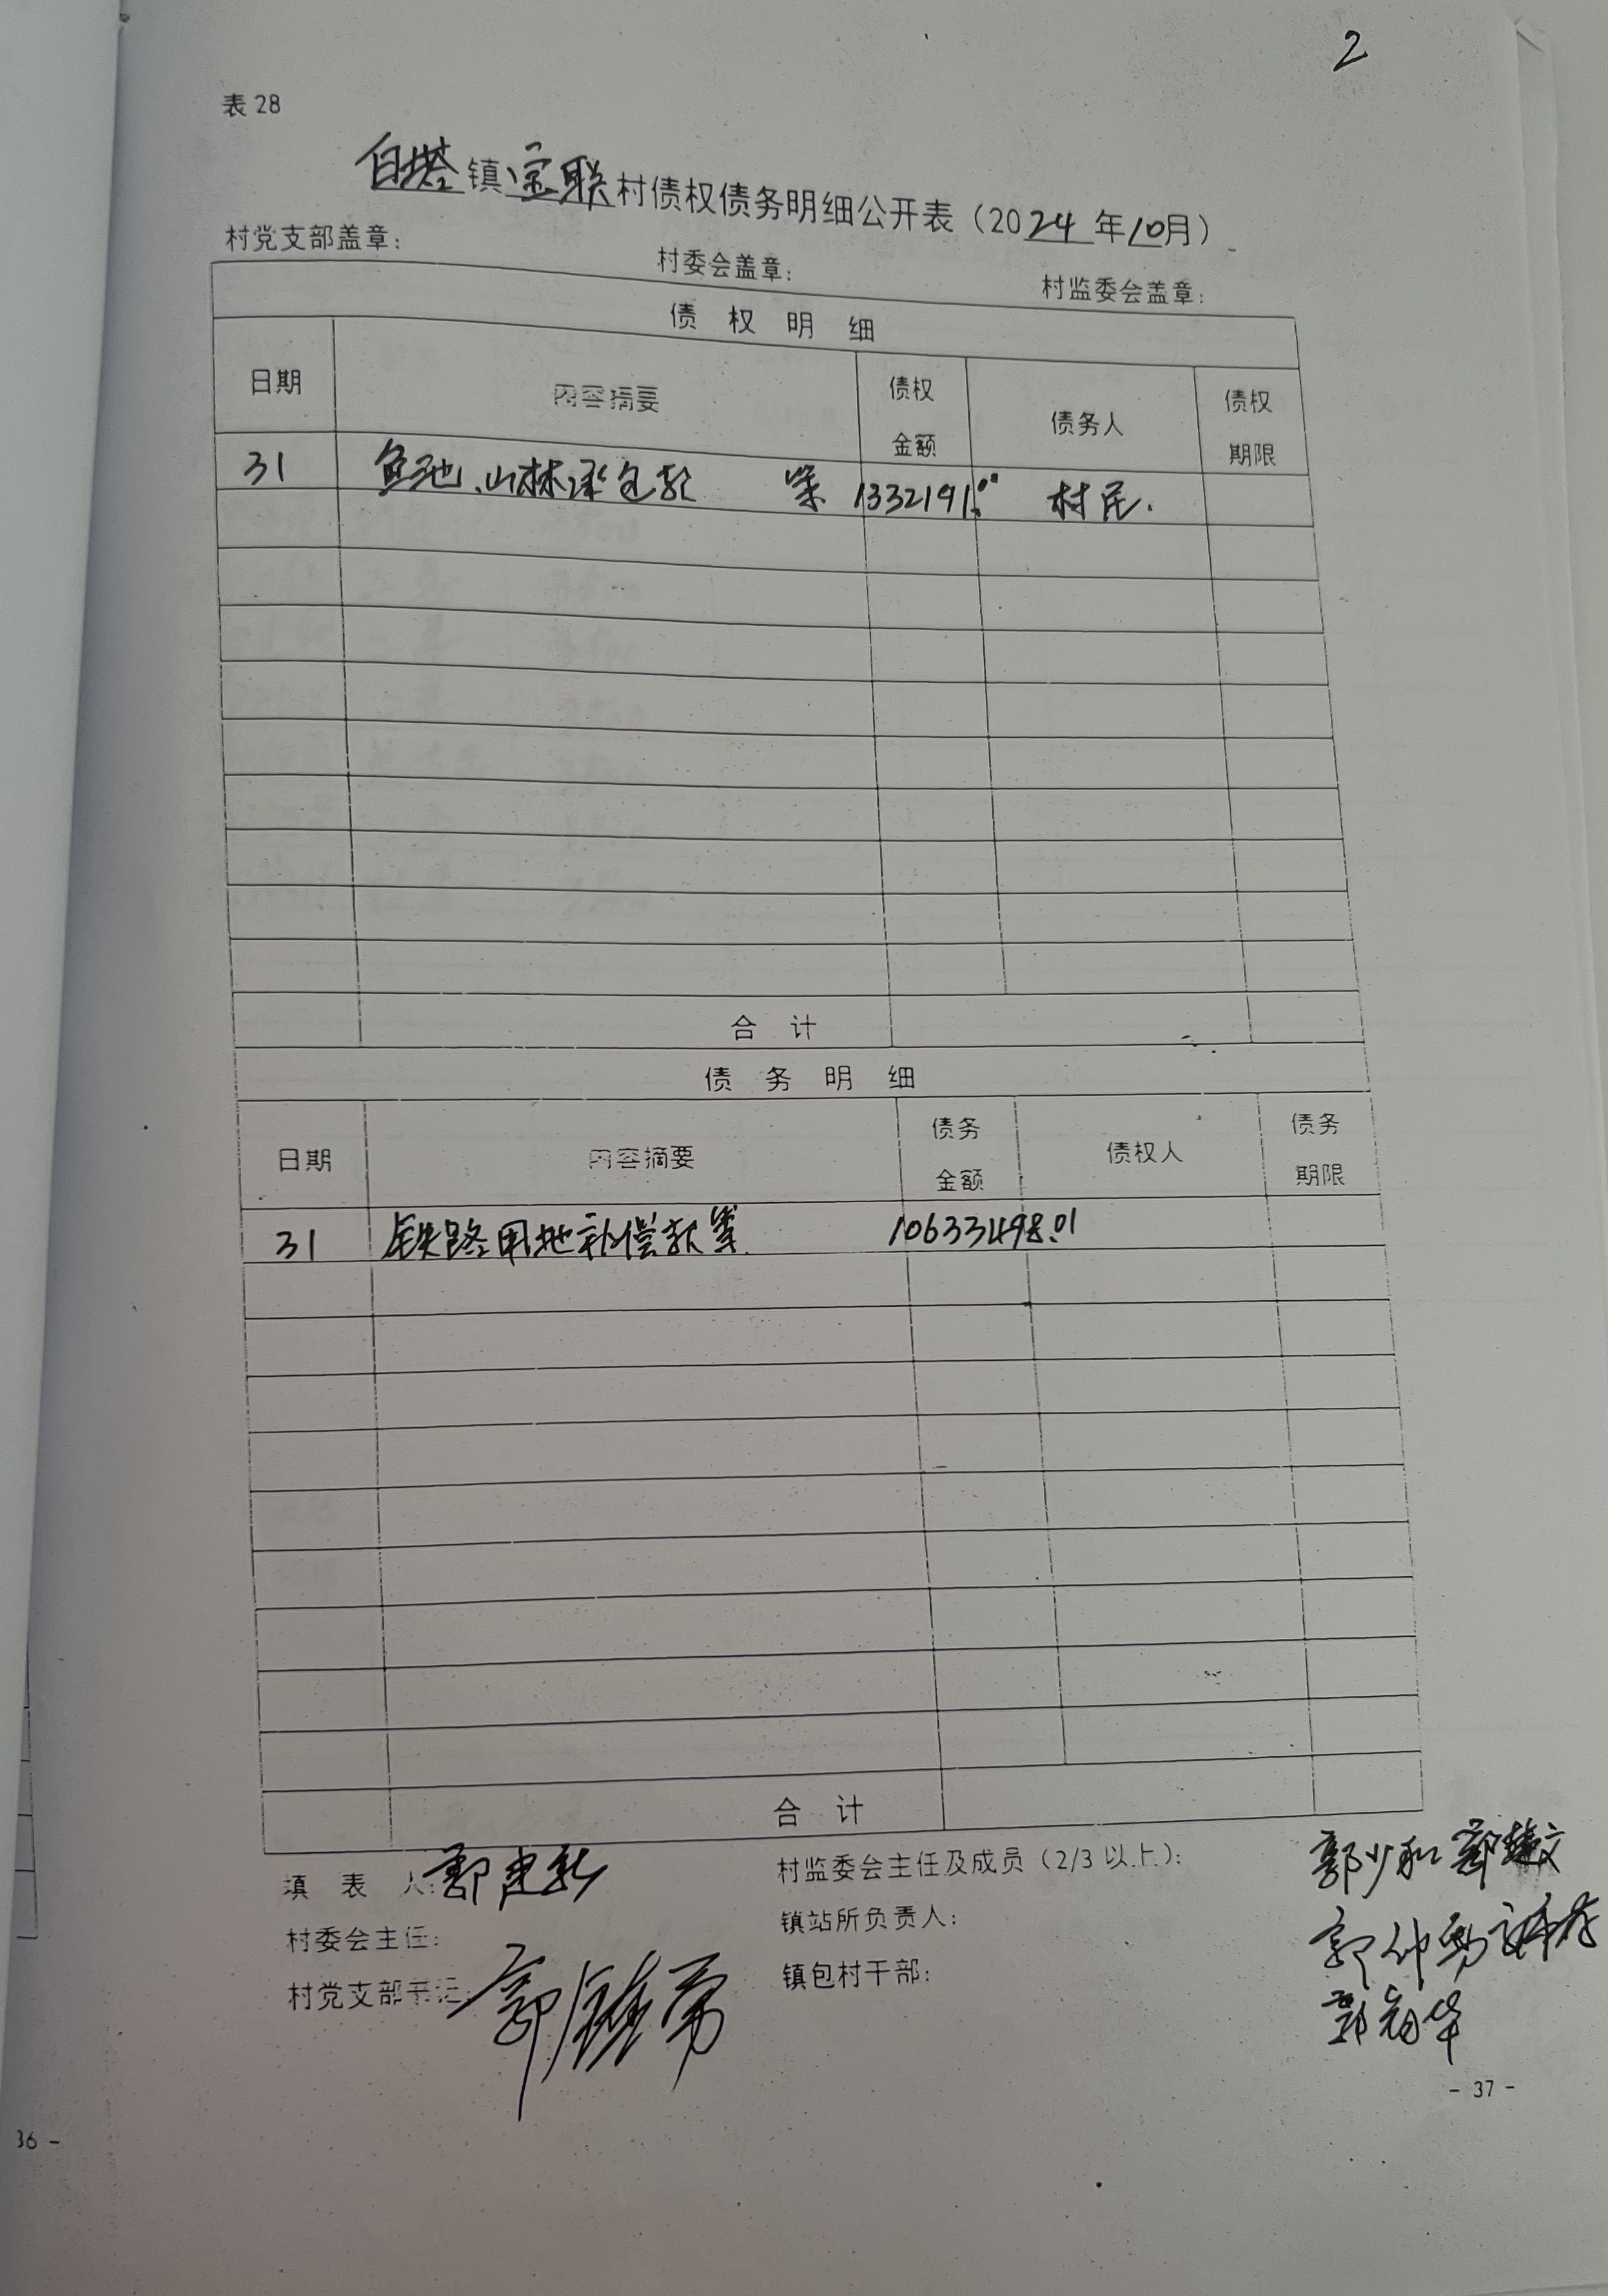 2
表 28
白塔镇宝联村债权债务明细公开表（2024 年10月）
村党支部盖章： 村委会盖章： 村监委会盖章：
债 权 明 细
日期 内容摘要 债权金额 债务人 债权期限
31 鱼池、山林承包款 等 1332191.00 村民.
合 计
债 务 明 细
日期 内容摘要 债务金额 债权人 债务期限
31 铁路用地补偿款等 10633498.01
合 计
填 表 人： 郭建新 村监委会主任及成员（2/3 以上）： 郭少和
村委会主任： 镇站所负责人：
村党支部书记： 镇包村干部：
- 37 -
36 -